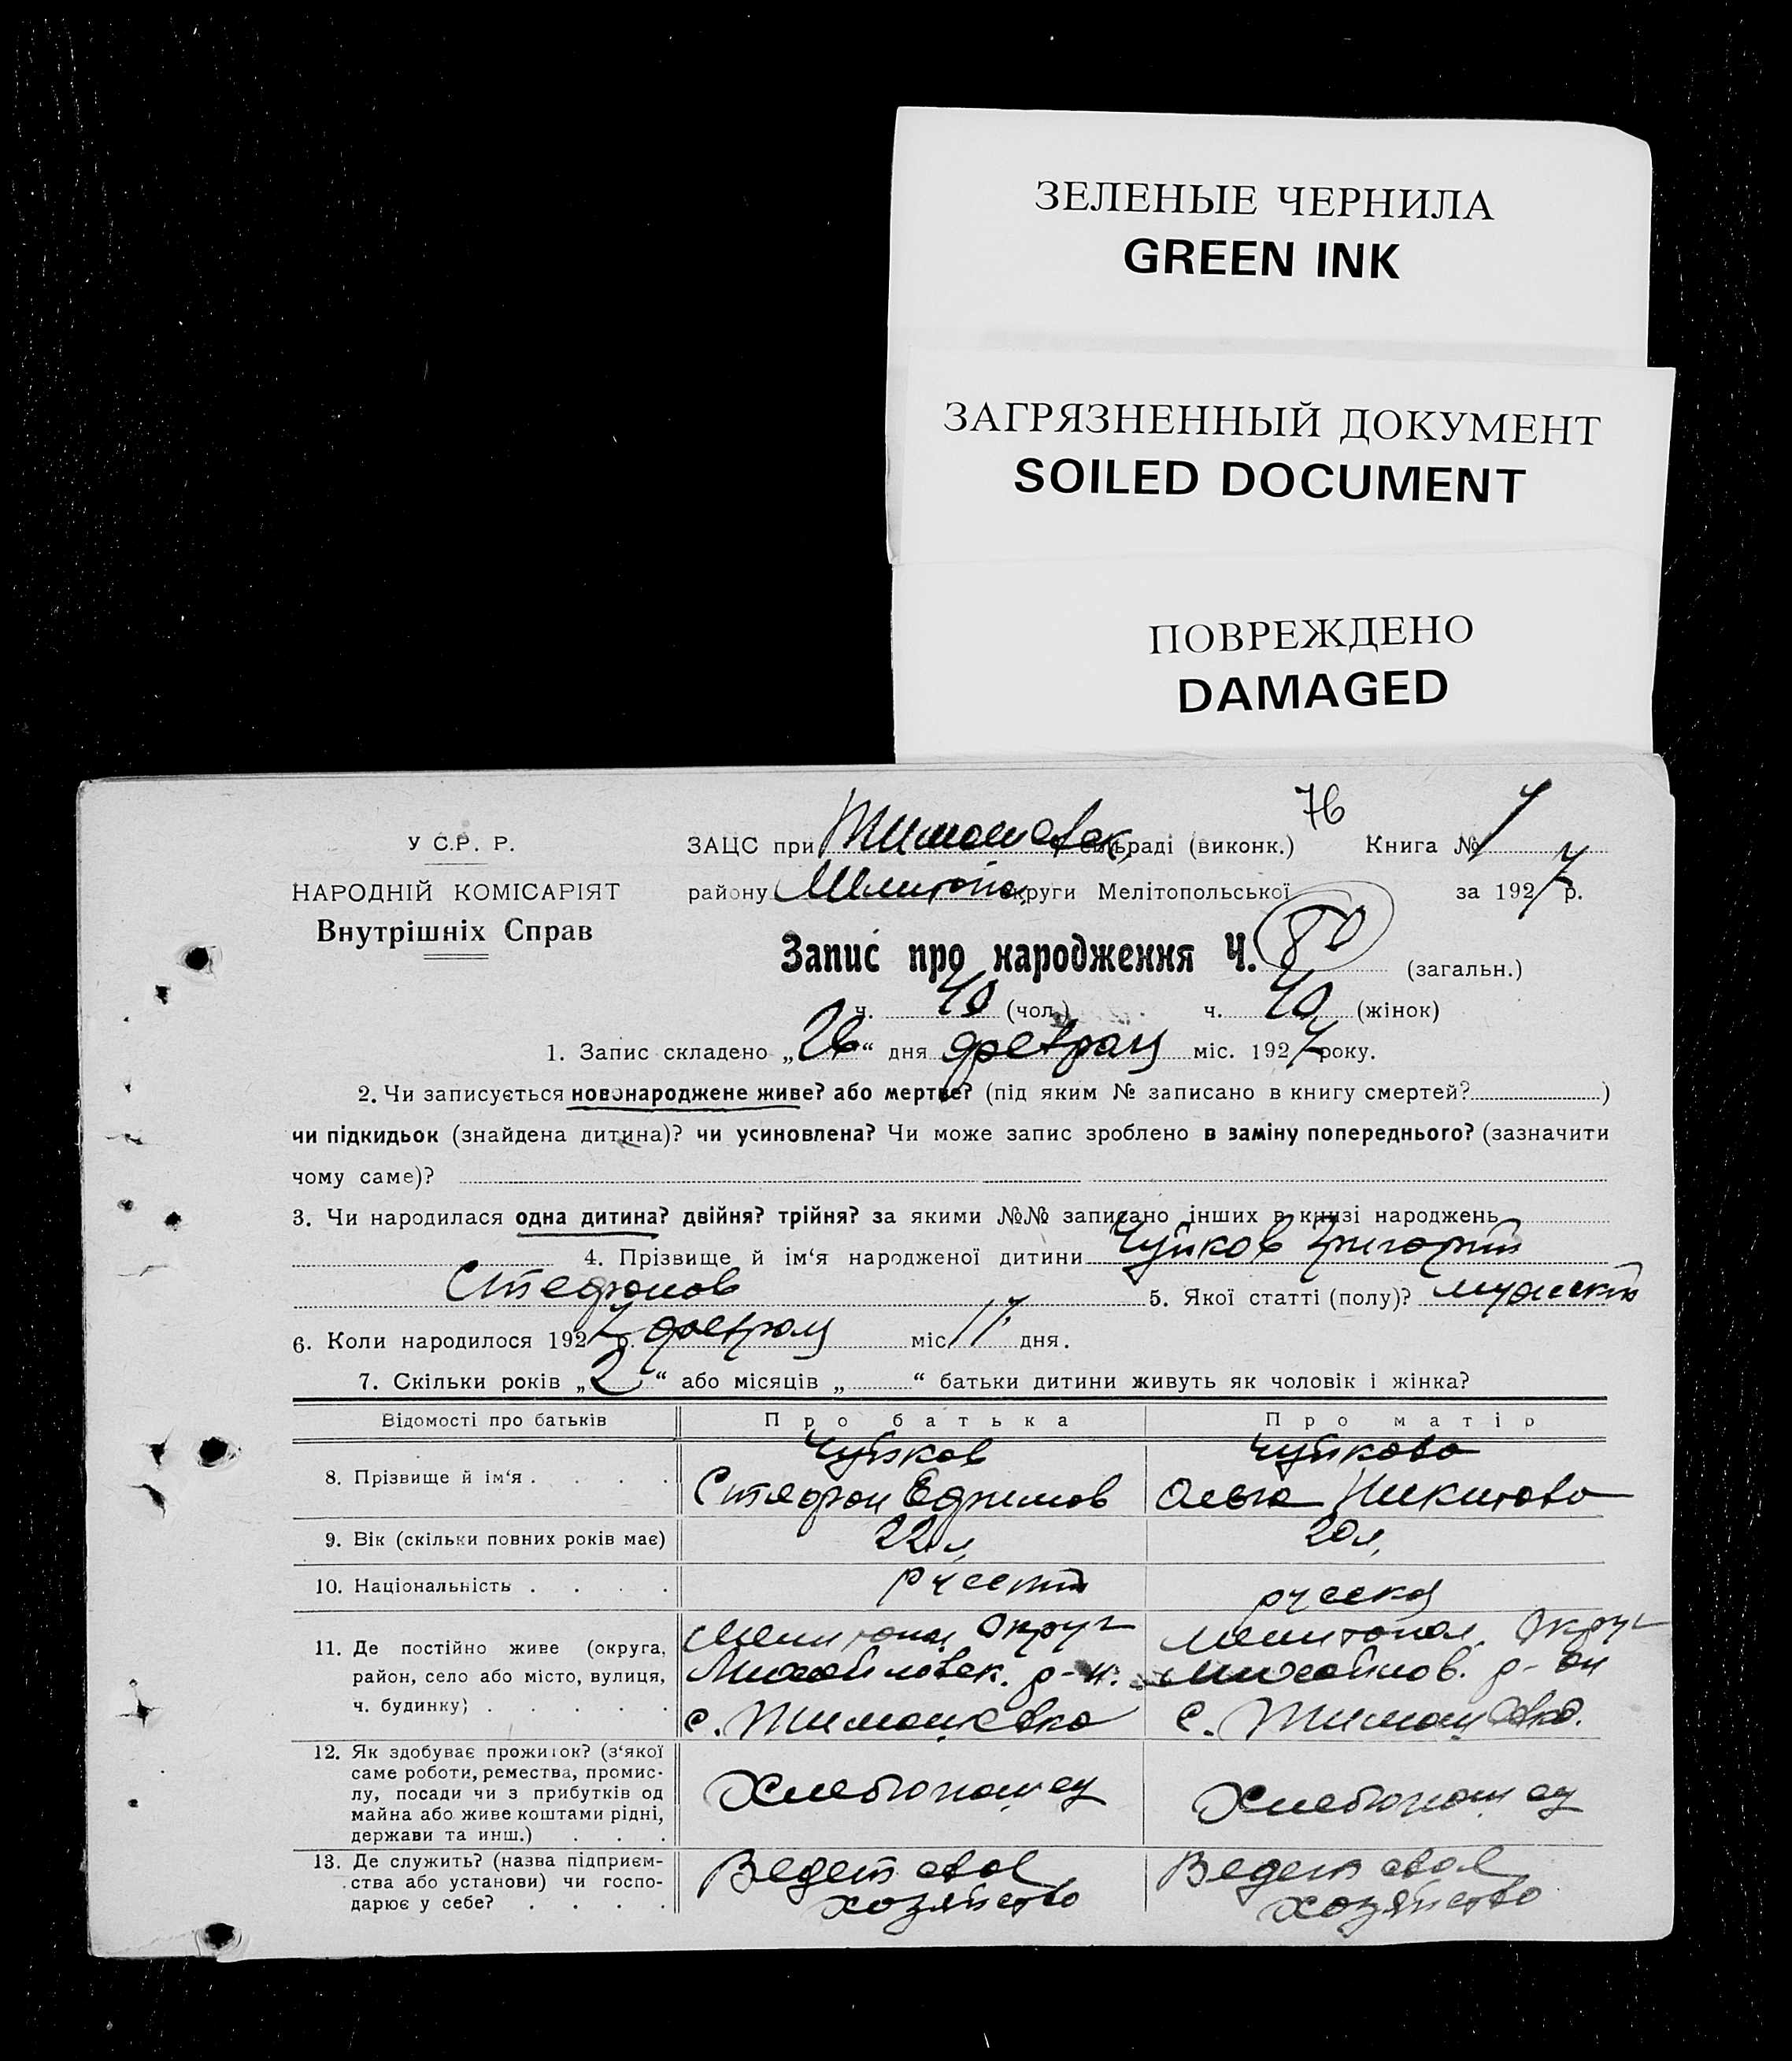 ЗЕЛЕНЫЕ ЧЕРНИЛА
GREEN INK
ЗАГРЯЗНЕННЫЙ ДОКУМЕНТ
SOILED DOCUMENT
ПОВРЕЖДЕНО
DAMAGED
76
У С.Р. Р.
ЗАЦС при Тимошевск. сільраді (виконк.) Книга № 1
НАРОДНІЙ КОМІСАРІЯТ
району округи Мелітопольської за 1927 р.
Внутрішніх Справ
Запис про народження Ч. 80 (загальн.)
ч. 40 (чол.) ч. 40 (жінок)
1. Запис складено „26“ дня февраля міс. 1927 року.
2. Чи записується новонароджене живе? або мертве? (під яким № записано в книгу смертей? )
чи підкидьок (знайдена дитина)? чи усиновлена? Чи може запис зроблено в заміну попереднього? (зазначити
чому саме)?
3. Чи народилася одна дитина? двійня? трійня? за якими №№ записано інших в книзі народжень
4. Прізвище й ім‘я народженої дитини Чуйков Григорий
Стефанов 5. Якої статті (полу)? мужской
6. Коли народилося 1927 р. февраля міс 17 дня.
7. Скільки років „2“ або місяців „ “ батьки дитини живуть як чоловік і жінка?
Відомості про батьків Про батька Про матір
8. Прізвище й ім‘я . . . . Чуйков Чуйкова
Стефан Ефимов Ольга Никитова
9. Вік (скільки повних років має) 22 л. 20 л.
10. Національність . . . . русский русская
11. Де постійно живе (округа, Мелитопол. Округ Мелитопол. Округ
район, село або місто, вулиця, Михайловск. р-н. Михайлов. р-он
ч. будинку) . . . . . с. Тимошевка с. Тимошевка.
12. Як здобуває прожиток? (з‘якої
саме роботи, ремества, промис-
лу, посади чи з прибутків од Хлебопашец Хлебопашец
майна або живе коштами рідні,
держави та инш.) . . .
13. Де служить? (назва підприєм- Ведет свое Ведет свое
ства або установи) чи госпо- хозяйство хозяйство
дарює у себе? . . . .